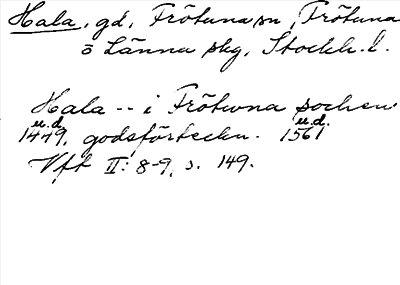 Hala, gd, Frötuna sn, Frötuna
o Länna skg, Stockh. l.
Hala -- i Frötwna sochen
u.d. u.d.
1449, godsförteckn. 1561
Vft II: 8-9, s. 149.